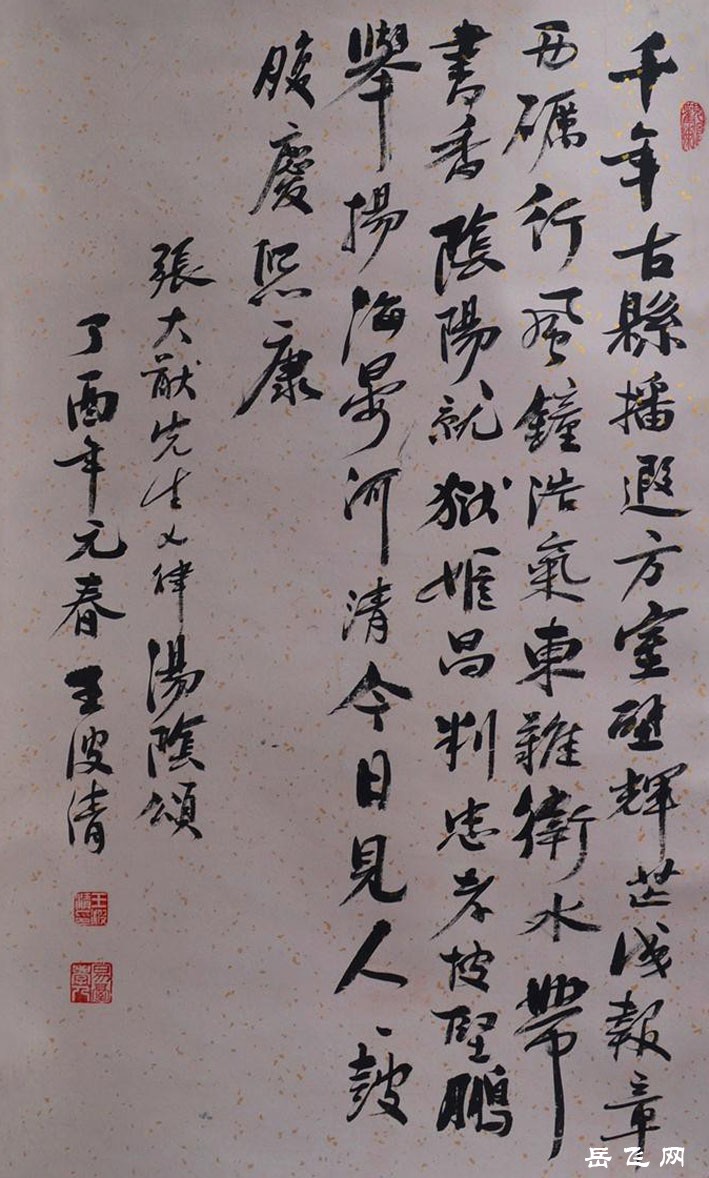 千年古縣播遐方室壁輝芒成報章
西礪行風鐘浩氣東衛水帶
書香陰陽就獄姬昌判忠孝披堅鵬
舉揚海晏河清今日見人人皷
腹慶熙康
張大猷先生七律湯陰頌
丁酉年元春王波清
岳飞网